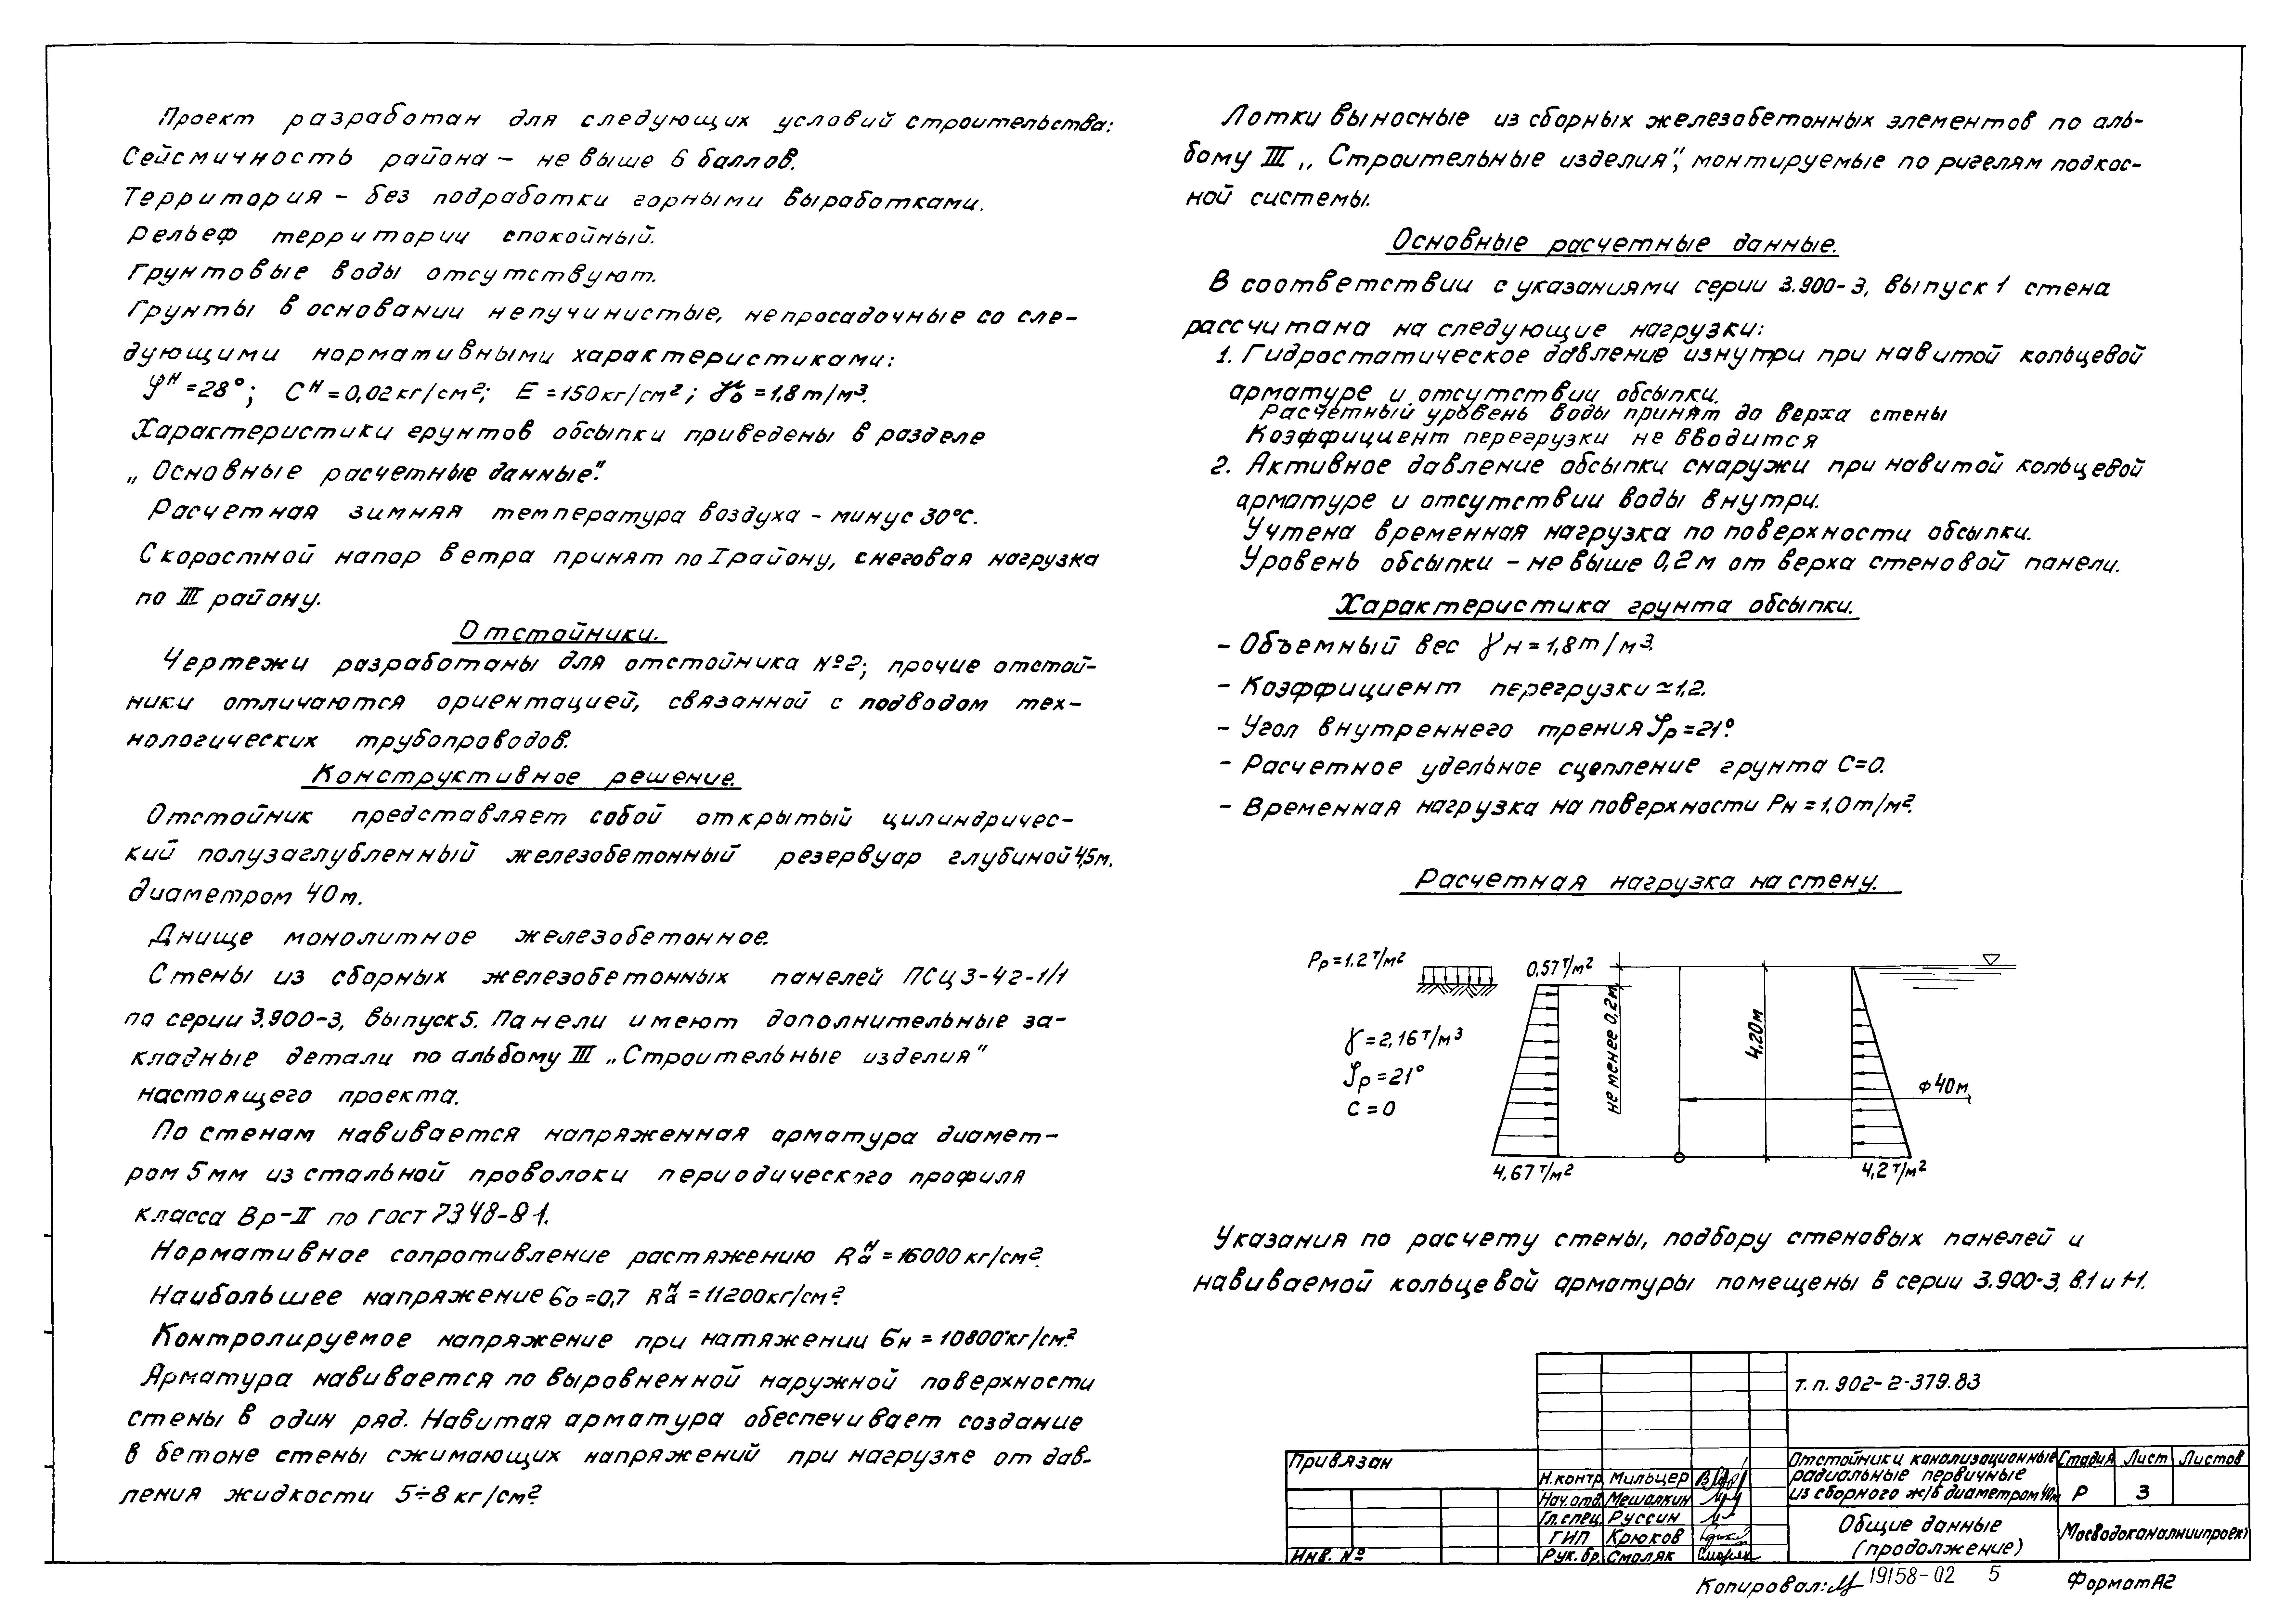 Проект разработан для следующих условий строительства:
Сейсмичность района – не выше 6 баллов.
Территория – без подработки горными выработками.
Рельеф территории спокойный.
Грунтовые воды отсутствуют.
Грунты в основании непучинистые, непросадочные со сле-
дующими нормативными характеристиками:
φн = 28°; Cн = 0,02 кг/см²; E = 150 кг/см²; γо = 1,8 т/м³.
Характеристики грунтов обсыпки приведены в разделе
„Основные расчетные данные".
Расчетная зимняя температура воздуха – минус 30°С.
Скоростной напор ветра принят по I району, снеговая нагрузка
по III району.
Отстойники.
Чертежи разработаны для отстойника №2; прочие отстой-
ники отличаются ориентацией, связанной с подводом тех-
нологических трубопроводов.
Конструктивное решение.
Отстойник представляет собой открытый цилиндричес-
кий полузаглубленный железобетонный резервуар глубиной 4,5м.
диаметром 40м.
Днище монолитное железобетонное.
Стены из сборных железобетонных панелей ПСЦ3-42-1/1
по серии 3.900-3, выпуск 5. Панели имеют дополнительные за-
кладные детали по альбому III „Строительные изделия"
настоящего проекта.
По стенам навивается напряженная арматура диамет-
ром 5мм из стальной проволоки периодического профиля
класса Вр-II по ГОСТ 7348-81.
Нормативное сопротивление растяжению Rан = 16000 кг/см².
Наибольшее напряжение σо = 0,7 Rан = 11200 кг/см².
Контролируемое напряжение при натяжении σн = 10800 кг/см².
Арматура навивается по выровненной наружной поверхности
стены в один ряд. Навитая арматура обеспечивает создание
в бетоне стены сжимающих напряжений при нагрузке от дав-
ления жидкости 5÷8 кг/см².
Лотки выносные из сборных железобетонных элементов по аль-
бому III „Строительные изделия", монтируемые по ригелям подкос-
ной системы.
Основные расчетные данные.
В соответствии с указаниями серии 3.900-3, выпуск 1 стена
рассчитана на следующие нагрузки:
1. Гидростатическое давление изнутри при навитой кольцевой
арматуре и отсутствии обсыпки.
Расчетный уровень воды принят до верха стены
Коэффициент перегрузки не вводится
2. Активное давление обсыпки снаружи при навитой кольцевой
арматуре и отсутствии воды внутри.
Учтена временная нагрузка по поверхности обсыпки.
Уровень обсыпки – не выше 0,2м от верха стеновой панели.
Характеристика грунта обсыпки.
– Объемный вес γн = 1,8т/м³.
– Коэффициент перегрузки ≃ 1,2.
– Угол внутреннего трения φр = 21°.
– Расчетное удельное сцепление грунта С=0.
– Временная нагрузка на поверхности Рн = 1,0т/м².
Расчетная нагрузка на стену.
Рр = 1.2 т/м²
0,57 т/м²
не менее 0,2м
4,20м
γ = 2,16 т/м³
φр = 21°
С = 0
ф 40м
4,67 т/м²
4,2 т/м²
Указания по расчету стены, подбору стеновых панелей и
навиваемой кольцевой арматуры помещены в серии 3.900-3, в.1 и 1-1.
т.п. 902-2-379.83
Привязан
Инв. №
Н.контр. Мильцер
Нач.отд. Мешалкин
Гл.спец. Руссин
ГИП Крюков
Рук.бр. Смоляк
Отстойники канализационные
радиальные первичные
из сборного ж/б диаметром 40м
Стадия Лист Листов
Р 3
Общие данные
(продолжение)
Мосводоканалниипроект
Копировал: 19158-02 5 Формат А2